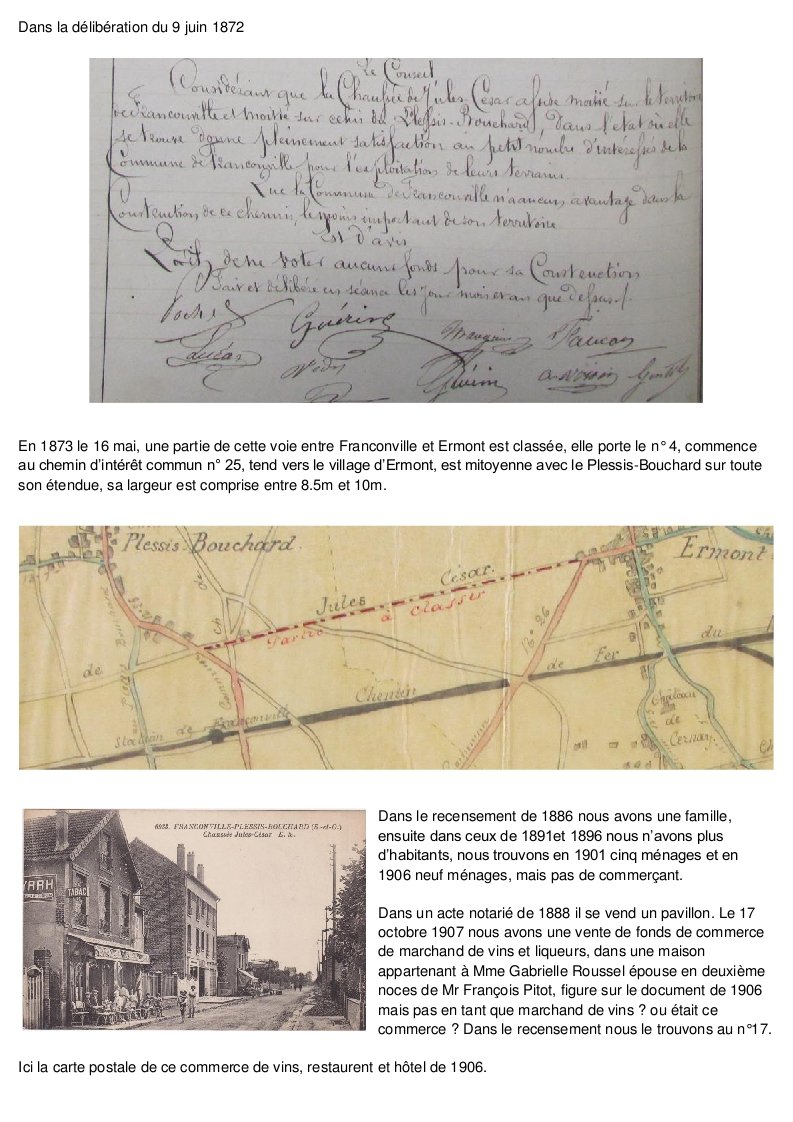 Dans la délibération du 9 juin 1872
Le Conseil
Considérant que la Chaussée de Jules César assise moitié sur le territoire
de Franconville et moitié sur celui du Plessis-Bouchard, dans l'état où elle
se trouve donne pleinement satisfaction au petit nombre d'intéressés de la
Commune de Franconville pour l'exploitation de leurs terrains.
Vu que la Commune de Franconville n'a aucun avantage dans la
Construction de ce chemin, le moins important de son territoire
Est d'avis
de ne voter aucuns fonds pour sa Construction
Fait et délibéré en séance les jour mois et an que dessus
Guérin
Lucas
En 1873 le 16 mai, une partie de cette voie entre Franconville et Ermont est classée, elle porte le n° 4, commence
au chemin d'intérêt commun n° 25, tend vers le village d'Ermont, est mitoyenne avec le Plessis-Bouchard sur toute
son étendue, sa largeur est comprise entre 8.5m et 10m.
Plessis-Bouchard
Ermont
Jules César
Partie à classer
N° 26
de
Chemin de Fer du
Station de Franconville
Château de Cernay
6928. FRANCONVILLE-PLESSIS-BOUCHARD (S.-et-O.)
Chaussée Jules-César E. M.
TABAC
Dans le recensement de 1886 nous avons une famille,
ensuite dans ceux de 1891et 1896 nous n'avons plus
d'habitants, nous trouvons en 1901 cinq ménages et en
1906 neuf ménages, mais pas de commerçant.
Dans un acte notarié de 1888 il se vend un pavillon. Le 17
octobre 1907 nous avons une vente de fonds de commerce
de marchand de vins et liqueurs, dans une maison
appartenant à Mme Gabrielle Roussel épouse en deuxième
noces de Mr François Pitot, figure sur le document de 1906
mais pas en tant que marchand de vins ? ou était ce
commerce ? Dans le recensement nous le trouvons au n°17.
Ici la carte postale de ce commerce de vins, restaurent et hôtel de 1906.